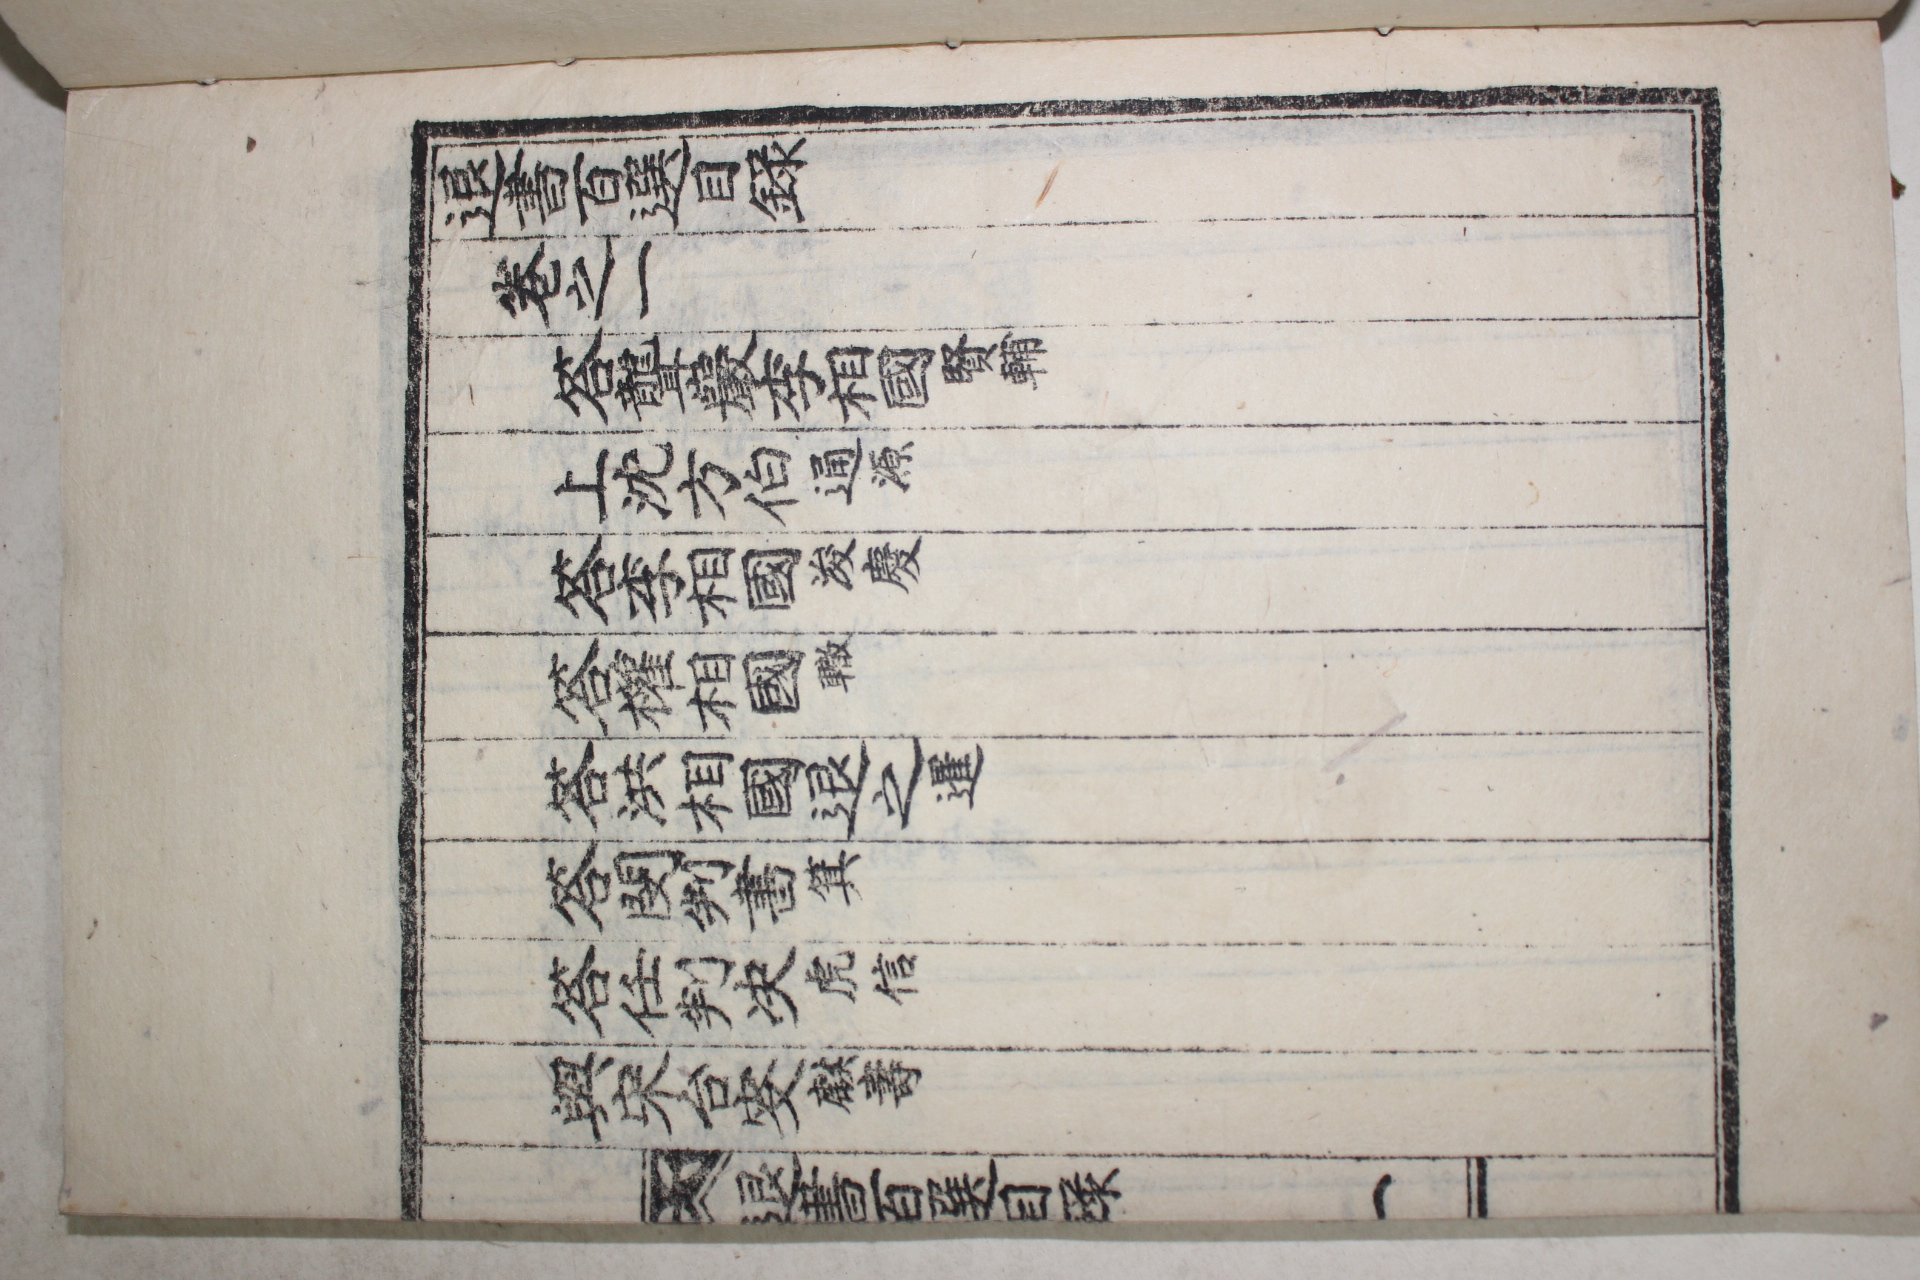 退書百選目錄
卷之一
答聾巖李相國賢輔
上沈方伯通源
答李相國浚慶
答權相國轍
答洪相國退之暹
答閔判書箕
答任判決虎臣
與宋台叟麒壽
退書百選目錄 一